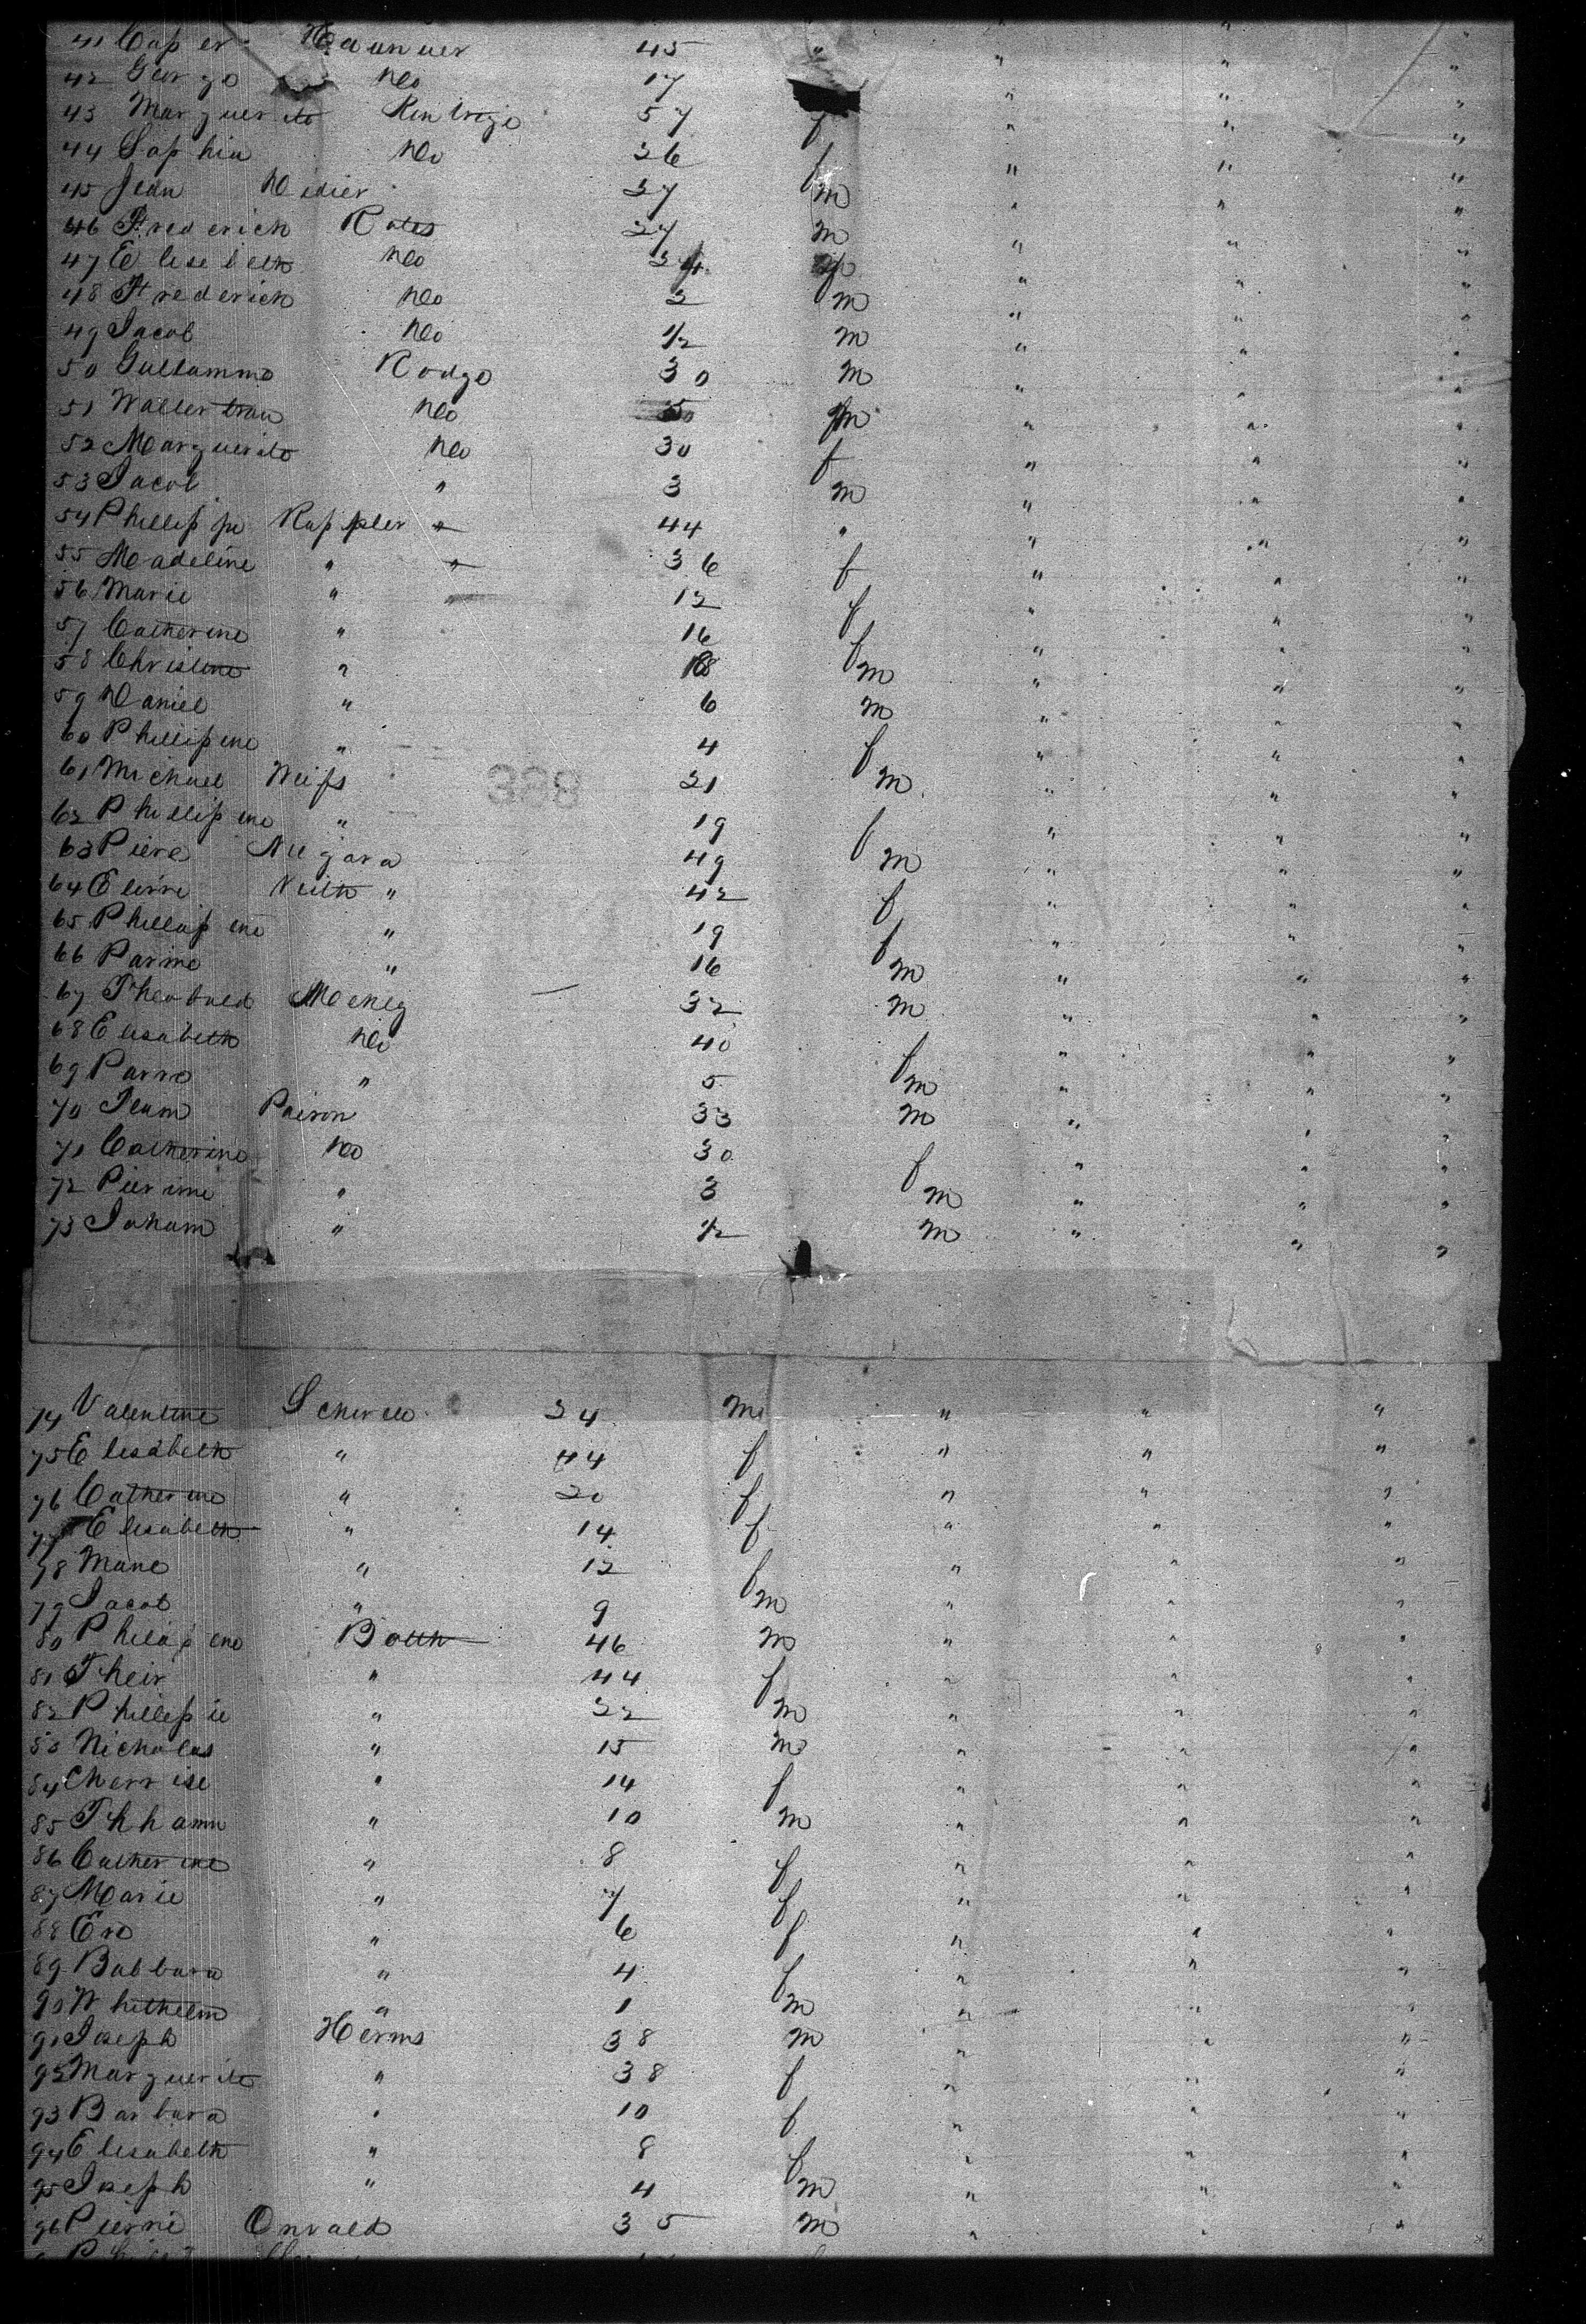 41 Casper Haunuer 45 " " " "
42 Geor go Do 17 " " "
43 Marguerite Kintrigo 57 f " " "
44 Sophia Do 26 f " " "
45 Jean Didier 27 m " " "
46 Frederich Rates 27 m " " "
47 Elisebeth Do 24 f " " "
48 Frederich Do 2 m " " "
49 Jacob Do 1/2 m " " "
50 Gullammo Rodgo 30 m " " "
51 Wallertran Do m " " "
52 Marguerite Do 30 f " " "
53 Jacob " 3 m " " "
54 Phillippe Kappler " 44 " " " "
55 Madeline " " 36 f " " "
56 Marie " " 12 f " " "
57 Catherine " 16 f " " "
58 Christine " 18 m " " "
59 Daniel " 6 m " " "
60 Phillipine " 4 f " " "
61 Michael Weifs 21 m " " "
62 Phillipine " 19 f " " "
63 Piere Niejara 49 m " " "
64 Elirre Veith " 42 f " " "
65 Phillapine " 19 f " " "
66 Parine " 16 m " " "
67 Theobald Meneg 32 m " " "
68 Elisabeth Do 40 f " " "
69 Parre " 5 m " " "
70 Jeam Poiron 33 m " " "
71 Catherine Do 30 f " " "
72 Pierine " 3 m " " "
73 Joham " 1/2 m " " "
74 Valentine Schirelo 34 m " " "
75 Elesabeth " 44 f " " "
76 Catherine " 20 f " " "
77 Elesabeth " 14 f " " "
78 Marie " 12 f " " "
79 Jacob " 9 m " " "
80 Philapine Botth 46 m " " "
81 Their " 44 f " " "
82 Phillipie " 22 m " " "
83 Nicholas " 15 m " " "
84 Cherrise " 14 f " " "
85 Thhamn " 10 m " " "
86 Catherine " 8 f " " "
87 Marie " 7 f " " "
88 Eve " 6 f " " "
89 Babbara " 4 f " " "
90 Whithelm " 1 m " " "
91 Joseph Herms 38 m " " "
92 Marguerite " 38 f " " "
93 Barbara " 10 f " " "
94 Elesabeth " 8 f " " "
95 Joseph " 4 m " " "
96 Pierrie Onvald 35 m " " "